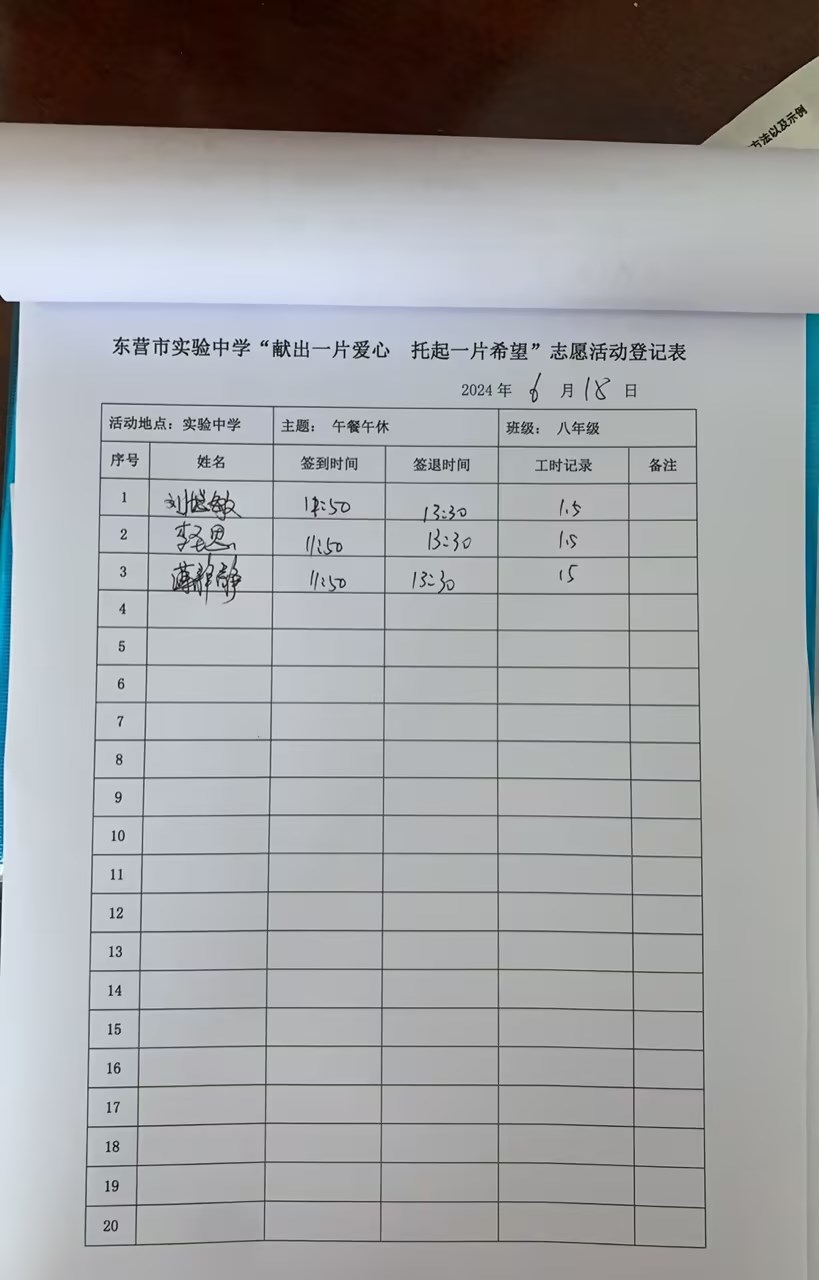 方法以及示例
东营市实验中学“献出一片爱心 托起一片希望”志愿活动登记表
2024 年 6 月 18 日
活动地点：实验中学 主题： 午餐午休 班级： 八年级
序号 姓名 签到时间 签退时间 工时记录 备注
1 刘 敏 11:50 13:30 1.5
2 李 思 11:50 13:30 1.5
3 薄 静 11:50 13:30 1.5
4
5
6
7
8
9
10
11
12
13
14
15
16
17
18
19
20